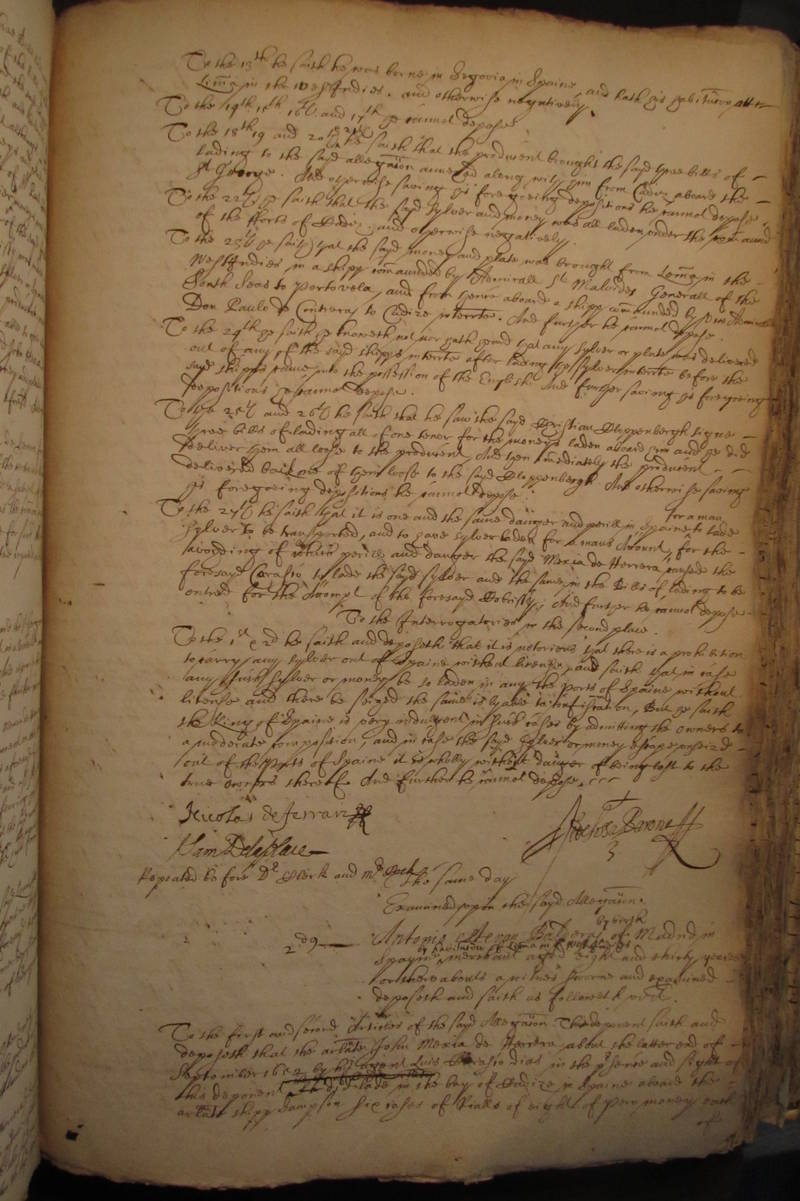 To the 13th he saith he was borne in Segovia in Spaine, and hath his habitation att
Lima in the West Indies. and otherwise negatively.
To the 14th 15th 16th and 17th he cannot depose
To the 18th 19 and 20th 21th he saith that the producent brought the sayd three bills of
lading to the sayd allegation annexed along with him from Cadiz aboard the
St George. And otherwise saving his foregoing depositions he cannot depose
To the 22th he saith that the sayd sylver and money was all laden under the command
of the fforts of Cadiz, and otherwise negatively.
To the 23th he saith that the sayd money and plate was brought from Lima in the
West Indies in a shipp commanded by Admirall Malvides Generall of the
South Seas to Portovela, and from thence aboard a shipp commanded by
Don Paulo de Contreras to Cadize interrate. And further he cannot depose.
To the 24th he saith he knoweth not nor hath heard that any sylver or plate was delivered
out of any of the sayd shipps interrate after lading the sylver interrate before the
sayd shipps came into the possession of the English. And further saving his foregoing
depositions he cannot depose.
To the 25th and 26th he saith that he saw the sayd Christian Cloppenbergh signe
three bills of lading all of one tenor for the moneys laden aboard him and he did
deliver them all loose to the producent, And then immediately the producent
delivered back one of them loose to the sayd Cloppenbergh And otherwise saving
his foregoing depositions he cannot depose.
To the 27th he saith that it is one and the same danger and perill in Spaine for a man to lade
sylver to be transported, and to have sylver laden for a mans Account, for the
avoyding of which perill and danger the sayd Maria de Herrera caused the
foresayd to lade the sayd sylver and the same in the Bills of lading to be
entred for the Accompt of the foresayd And further he cannot depose
To the Interrogatories in the second place.
To the 1st & 2d he saith and deposeth that it is notorious that there is a prohibition
to carry any sylver out of Spaine without license, and saith that in case
any such sylver or money be so laden in any the ports of Spaine without
license and there be seized the same is lyable to confiscation, But he saith
the King of Spaine is very indulgent in such cases by admitting the owners to
a moderate composition, and in case the sayd sylver or money escape unseized
out of the ports of Spaine it is wholly without danger of being lost to the
true owners thereof. And further he cannot depose.
Nicolas de
Repeated before Dr Clerk and Mr the same day
Examined upon the sayd Allegation.
by birth
2 dº Antonio of Madrid in
Spayne merchant aged eight and thirty yeares
or thereabouts a witnes sworne and examined
deposeth and saith as followeth vizt.
To the first and second Articles of the sayd Allegation this deponent saith and
deposeth that the arlate John Maria de Herrera about the latter end of
September 1652 by his agent Luis Dias in the presence and sight of
this deponent did lade in the bay of Cadize in Spaine aboard the
arlate shipp Sampson six cases of Rialls of eight of peru money each
of